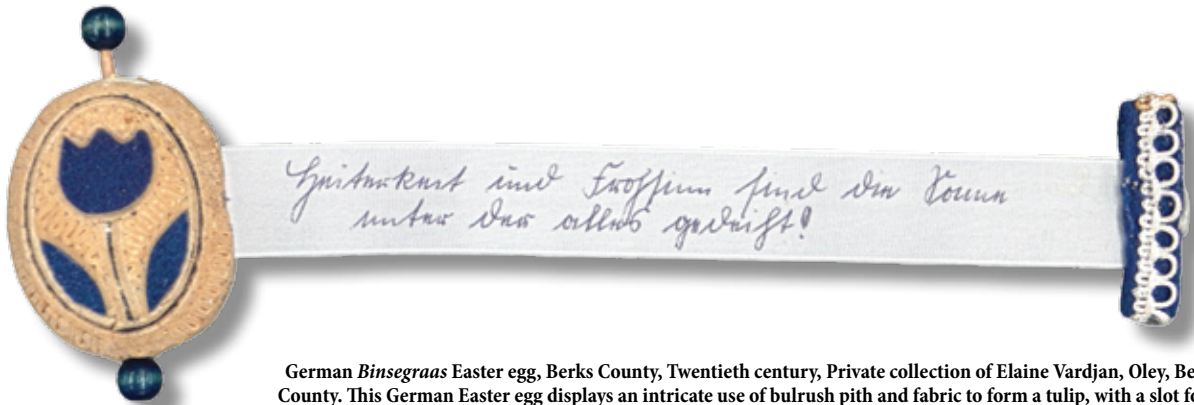 Heiterkeit und Frohsinn sind die Sonne
unter der alles gedeiht!
German Binsegraas Easter egg, Berks County, Twentieth century, Private collection of Elaine Vardjan, Oley,
County. This German Easter egg displays an intricate use of bulrush pith and fabric to form a tulip, with a slot